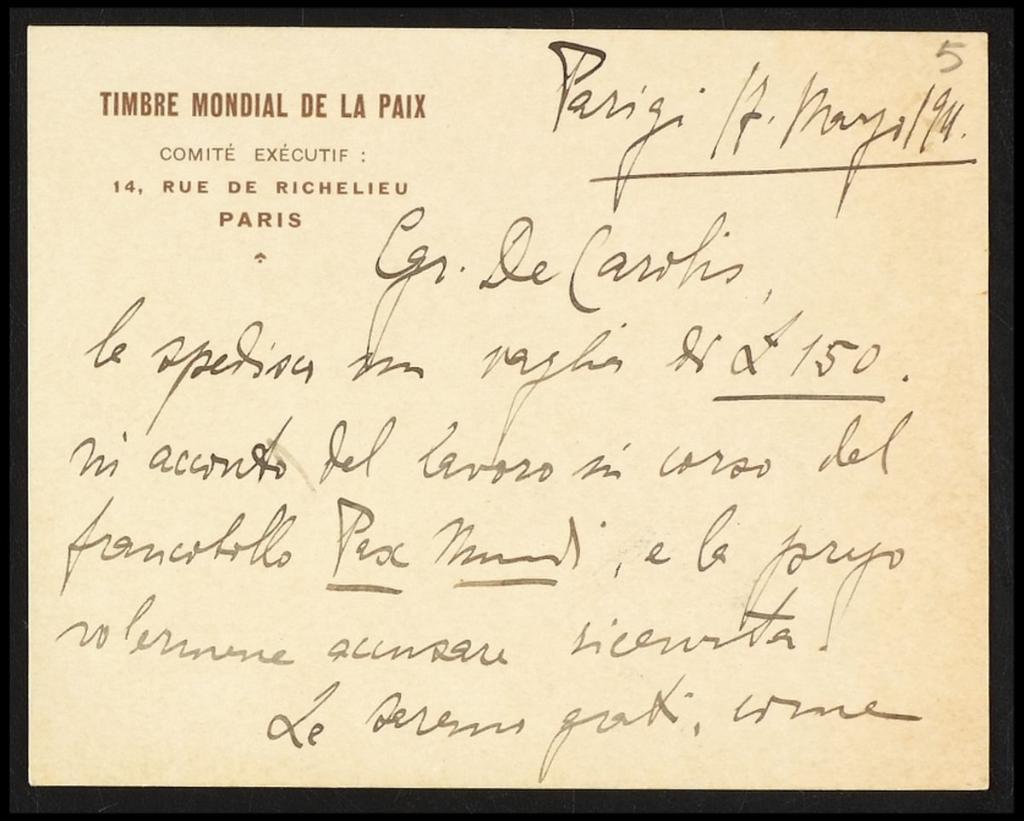 5
TIMBRE MONDIAL DE LA PAIX
COMITÉ EXÉCUTIF :
14, RUE DE RICHELIEU
PARIS
Parigi 17. Maggio
Egr. De Carolis,
le spedisco un vaglia di £ 150.
in acconto del lavoro in corso del
francobollo Pax Mundi, e la prego
volermene accusare ricevuta.
Le saremo grati, come